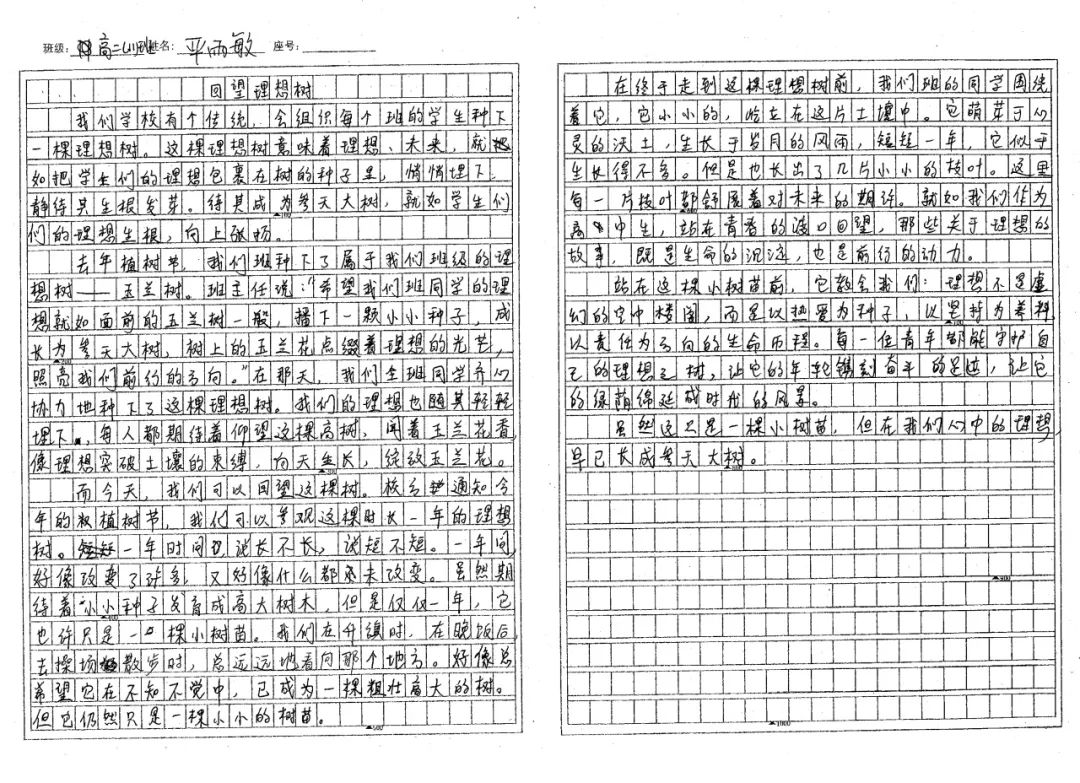 班级：高二(11)班 姓名：平雨敏 座号：
回望理想树
我们学校有个传统，会组织每个班的学生种下
一棵理想树。这棵理想树意味着理想、未来，就
如把学生们的理想包裹在树的种子里，悄悄埋下，
静待其生根发芽。待其成为参天大树，就如学生们
们的理想生根，向上张扬。
去年植树节，我们班种下了属于我们班级的理
想树——玉兰树。班主任说：“希望我们班同学的理
想就如面前的玉兰树一般，播下一颗小小种子，成
长为参天大树，树上的玉兰花点缀着理想的光芒，
照亮我们前行的方向。”在那天，我们全班同学齐心
协力地种下了这棵理想树。我们的理想也随其轻轻
埋下，每人都期待着仰望这棵高树，闻着玉兰花香，
像理想突破土壤的束缚，向天生长，绽放玉兰花。
而今天，我们可以回望这棵树。校方通知今
年的植树节，我们可以参观这棵时长一年的理想
树。一年时间说长不长，说短不短。一年间，
好像改变了许多，又好像什么都未改变。虽然期
待着小小种子发育成高大树木，但是仅仅一年，它
也许只是一棵小树苗。我们在升旗时，在晚饭后
去操场散步时，总远远地看向那个地方。好像总
希望它在不知不觉中，已成为一棵粗壮高大的树。
但它仍然只是一棵小小的树苗。
在终于走到这棵理想树前，我们班的同学围绕
着它，它小小的，屹立在这片土壤中。它萌芽于心
灵的沃土，生长于岁月的风雨，短短一年，它似乎
生长得不多。但是也长出了几片小小的枝叶。这里
每一片枝叶都舒展着对未来的期许。就如我们作为
高中生，站在青春的渡口回望，那些关于理想的
故事，既是生命的沉淀，也是前行的动力。
站在这棵小树苗前，它教会我们：理想不是虚
幻的空中楼阁，而是以热爱为种子，以坚持为养料，
以责任为方向的生命历程。每一位青年都能守护自
己的理想之树，让它的年轮镌刻奋斗的足迹，让它
的绿荫绵延成时代的风景。
虽然这只是一棵小树苗，但在我们心中的理想，
早已长成参天大树。